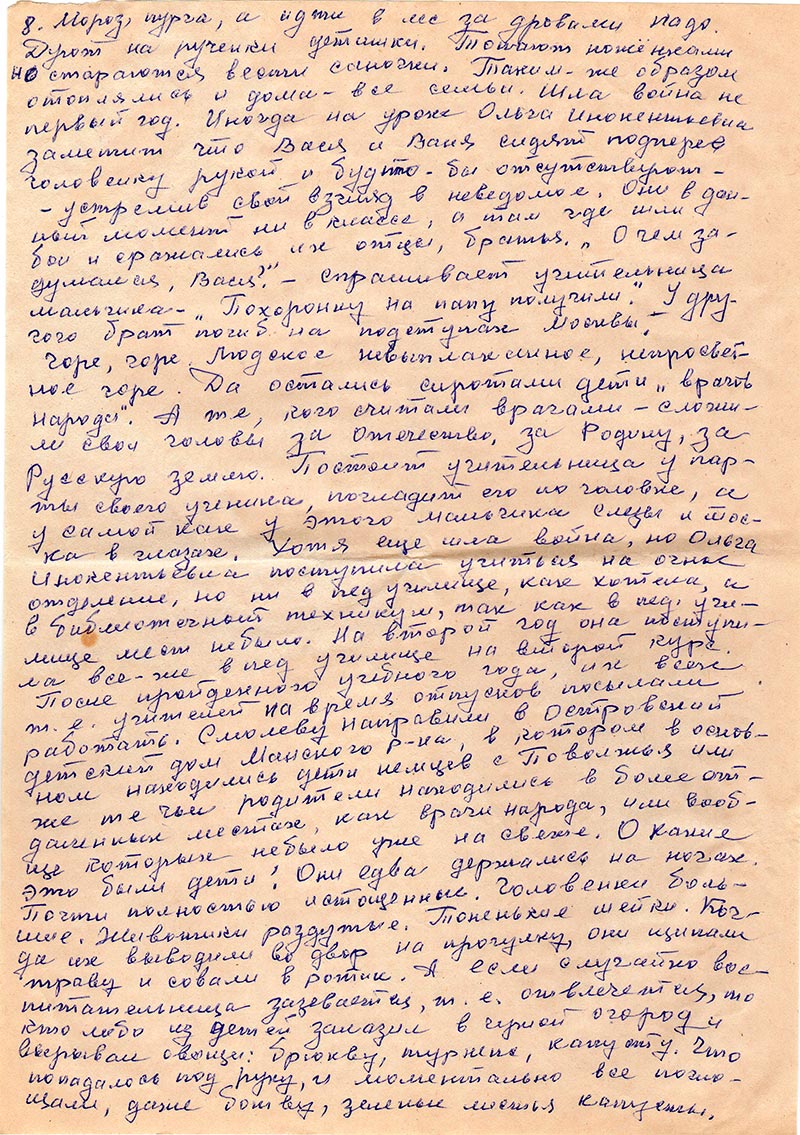 8. Мороз, пурга, а идти в лес за дровами надо.
Дуют на ручёнки детишки. Топают ножёнками
но стараются везти саночки. Таким-же образом
отоплялись и дома - все семьи. Шла война не
первый год. Иногда на уроке Ольга Инокентьевна
заметит что Вася и Ваня сидят подперев
головенку рукой и будто-бы отсутствуют -
- устремив свой взгляд в неведомое. Они в дан-
ный момент ни в классе, а там где шли
бои и сражались их отцы, братья. „О чем за-
думался, Вася?" - спрашивает учительница
мальчика - „Похоронку на папу получили." У дру-
гого брат погиб на подступах Москвы.
Горе, горе. Людское невыплаканное, непросвет-
ное горе. Да остались сиротами дети „врагов
народа". А те, кого считали врагами - сложи-
ли свои головы за Отечество, за Родину, за
Русскую землю. Постоит учительница у пар-
ты своего ученика, погладит его по головке, а
у самой как у этого мальчика слезы и тос-
ка в глазах. Хотя еще шла война, но Ольга
Инокентьевна поступила учиться на очное
отделение, но ни в пед училище, как хотела, а
в библиотечный техникум, так как в пед. учи-
лище мест небыло. На второй год она поступи-
ла все-же в пед училище на второй курс.
После пройденного учебного года, их всех
т. е. учителей на время отпусков посылали
работать. Смолеву направили в Островский
детский дом Манского р-на, в котором в основ-
ном находились дети немцев с Поволжья или
же те чьи родители находились в более отт-
даленных местах, как враги народа, или вооб-
ще которых небыло уже на свете. О какие
это были дети! Они едва держались на ногах.
Почти полностью истощенные. Головенки боль-
шие. Животики раздутые. Тоненькие шейки. Ког-
да их выводили во двор на прогулку, они щипали
траву и совали в ротик. А если случайно вос-
питательница зазевается, т. е. отвлечется, то
кто либо из детей залазил в чужой огород и
вырывал овощи: брюкву, турнепс, капусту. Что
попадалось под руку, и моментально все погло-
щали, даже ботву, зеленые листья капусты.